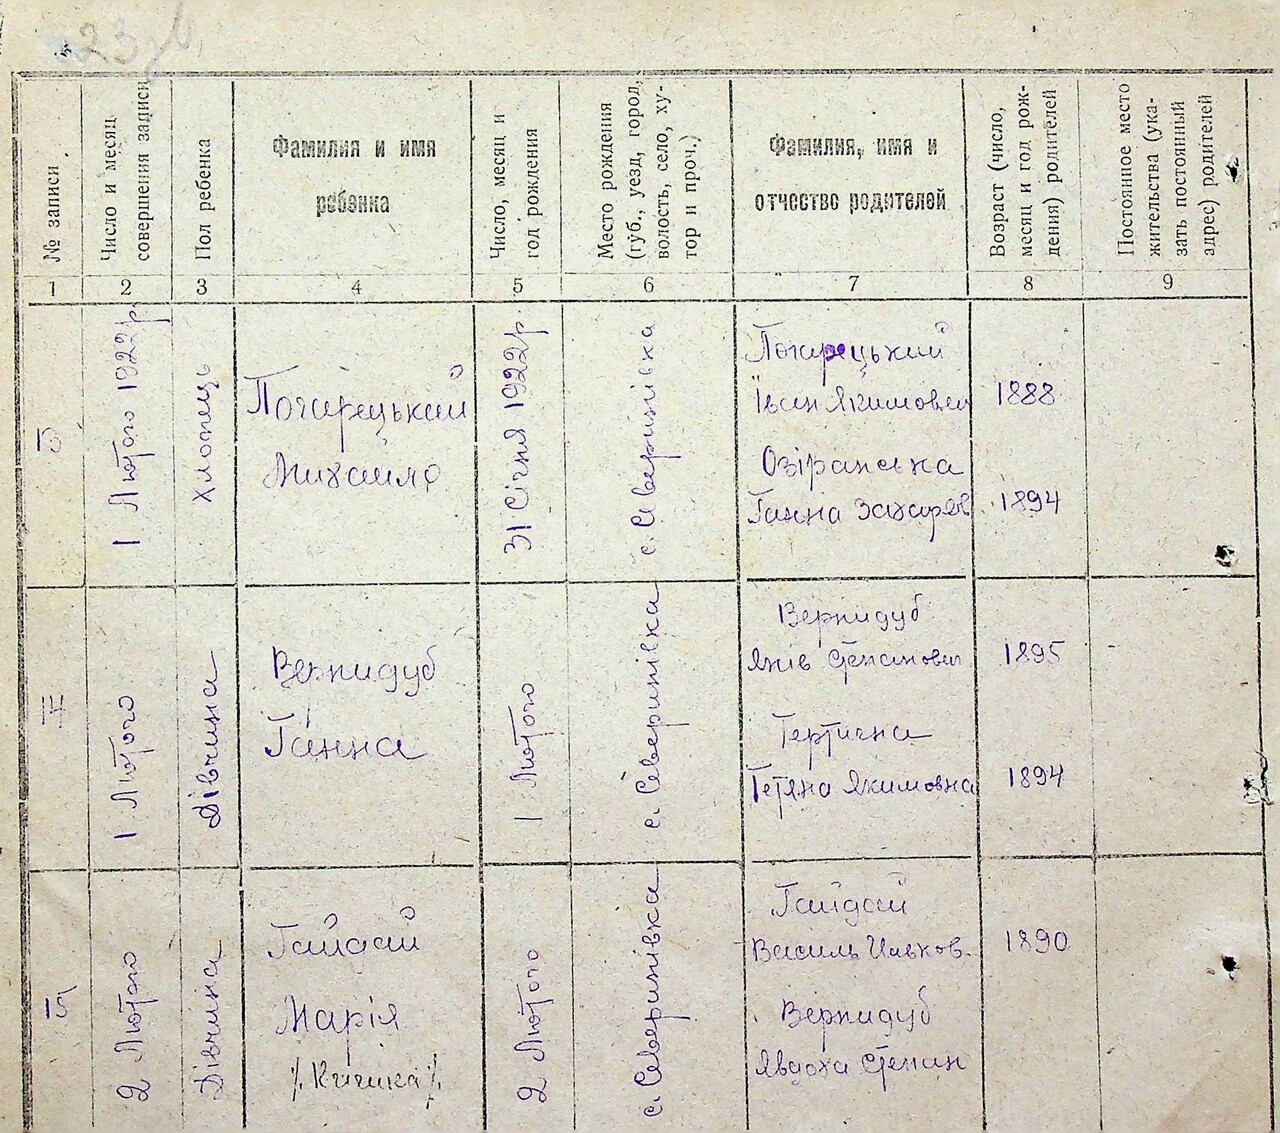 23
№ записи
Число и месяц
совершения записи
Пол ребенка
Фамилия и имя
ребенка
Число, месяц и
год рождения
Место рождения
(губ., уезд, город,
волость, село, ху-
тор и проч.)
Фамилия, имя и
отчество родителей
Возраст (число,
месяц и год рож-
дения) родителей
Постоянное место
жительства (ука-
зать постоянный
адрес) родителей
1 2 3 4 5 6 7 8 9
3
1 Лютого 1922 р.
Хлопець
Погирецький
Михаило
31 Січня 1922 р.
с. Северинівка
Погирецький
Іван Якимович
1888
Озіранська
Ганна Захарів
1894
4
1 Лютого
Дівчина
Вернидуб
Ганна
1 Лютого
с. Северинівка
Вернидуб
Яків Степанович
1895
Тертична
Тетяна Якимовна
1894
5
2 Лютого
Дівчина
Гайдай
Марія
2 Лютого
с. Северинівка
Гайдай
Василь Ильков.
1890
Вернидуб
Явдоха Степан